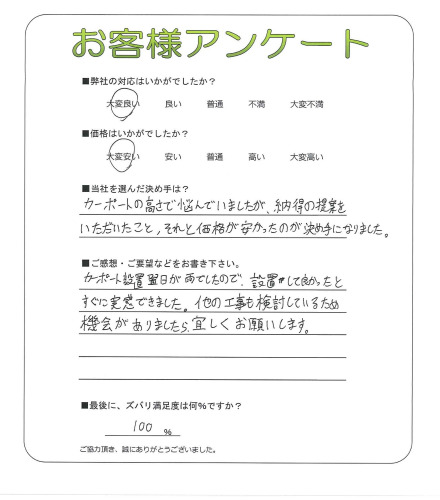 お客様アンケート
■弊社の対応はいかがでしたか?
大変良い 良い 普通 不満 大変不満
■価格はいかがでしたか?
大変安い 安い 普通 高い 大変高い
■当社を選んだ決め手は?
カーポートの高さで悩んでいましたが、納得の提案を
いただいたこと、それと価格が安かったのが決め手になりました。
■ご感想・ご要望などをお書き下さい。
カーポート設置翌日が雨でしたので、設置して良かったと
すぐに実感できました。他の工事も検討しているため
機会がありましたら、宜しくお願いします。
■最後に、ズバリ満足度は何%ですか?
100 %
ご協力頂き、誠にありがとうございました。